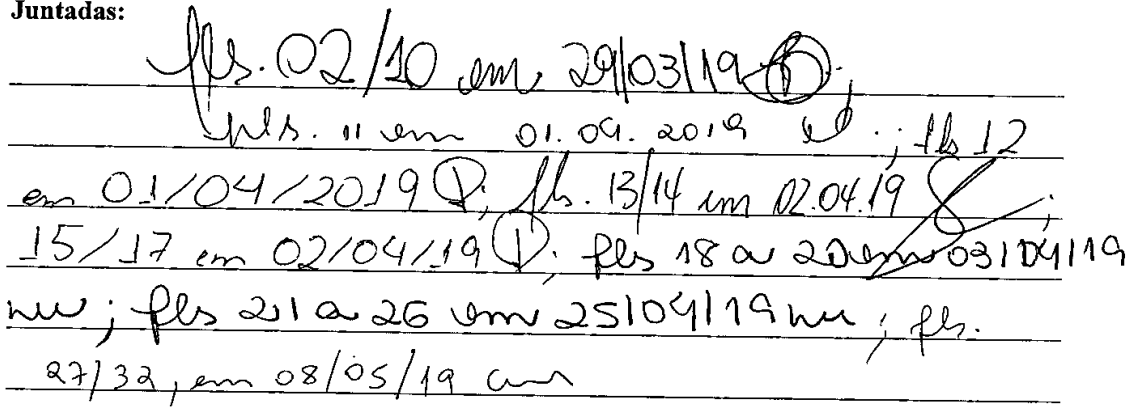 Juntadas:
fls. 02/10 em 29/03/19 ;
fls. 11 em 01.04.2019 ; fls 12
em 01/04/2019 ; fls. 13/14 em 02.04.19 ;
15/17 em 02/04/19 ; fls 18 a 20 em 03/04/19
; fls 21 a 26 em 25/04/19 ; fls.
27/32, em 08/05/19